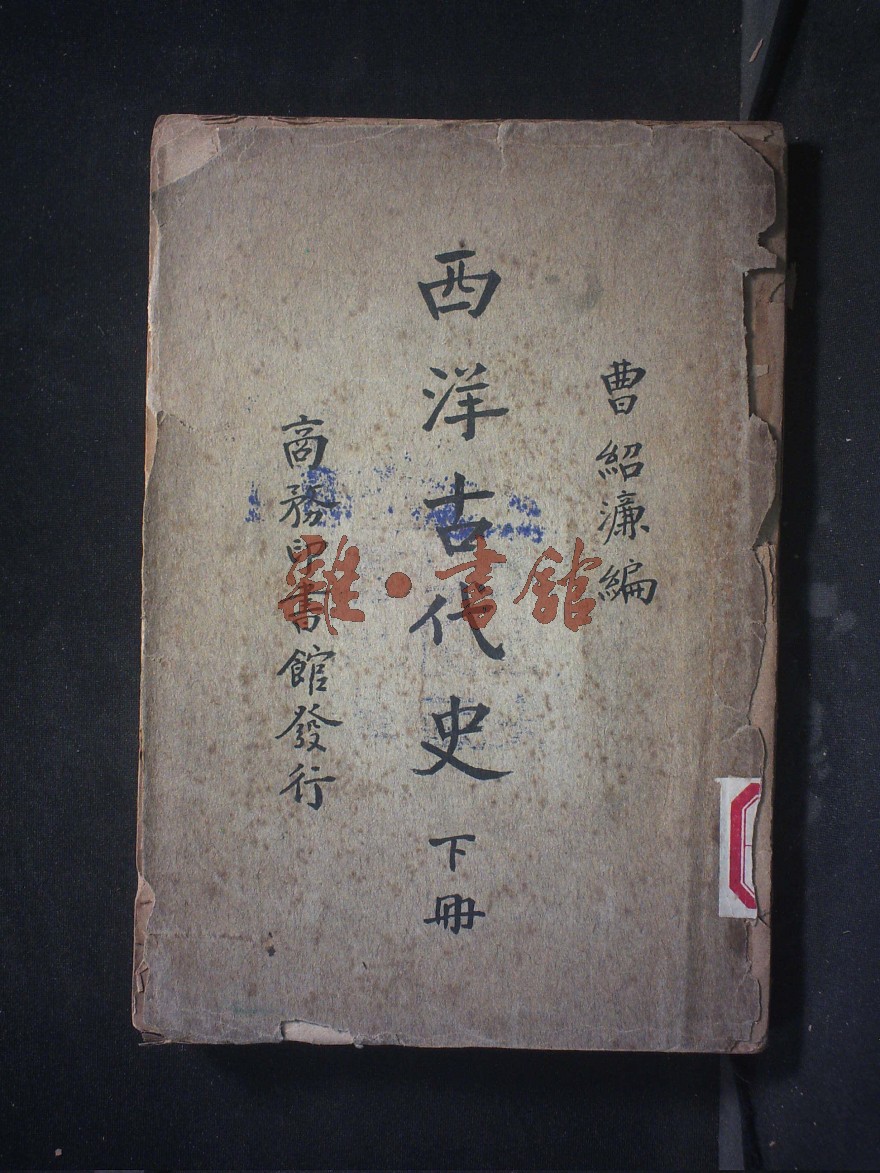 曹紹濂編
西洋古代史 下冊
商務印書館發行
雜·書館